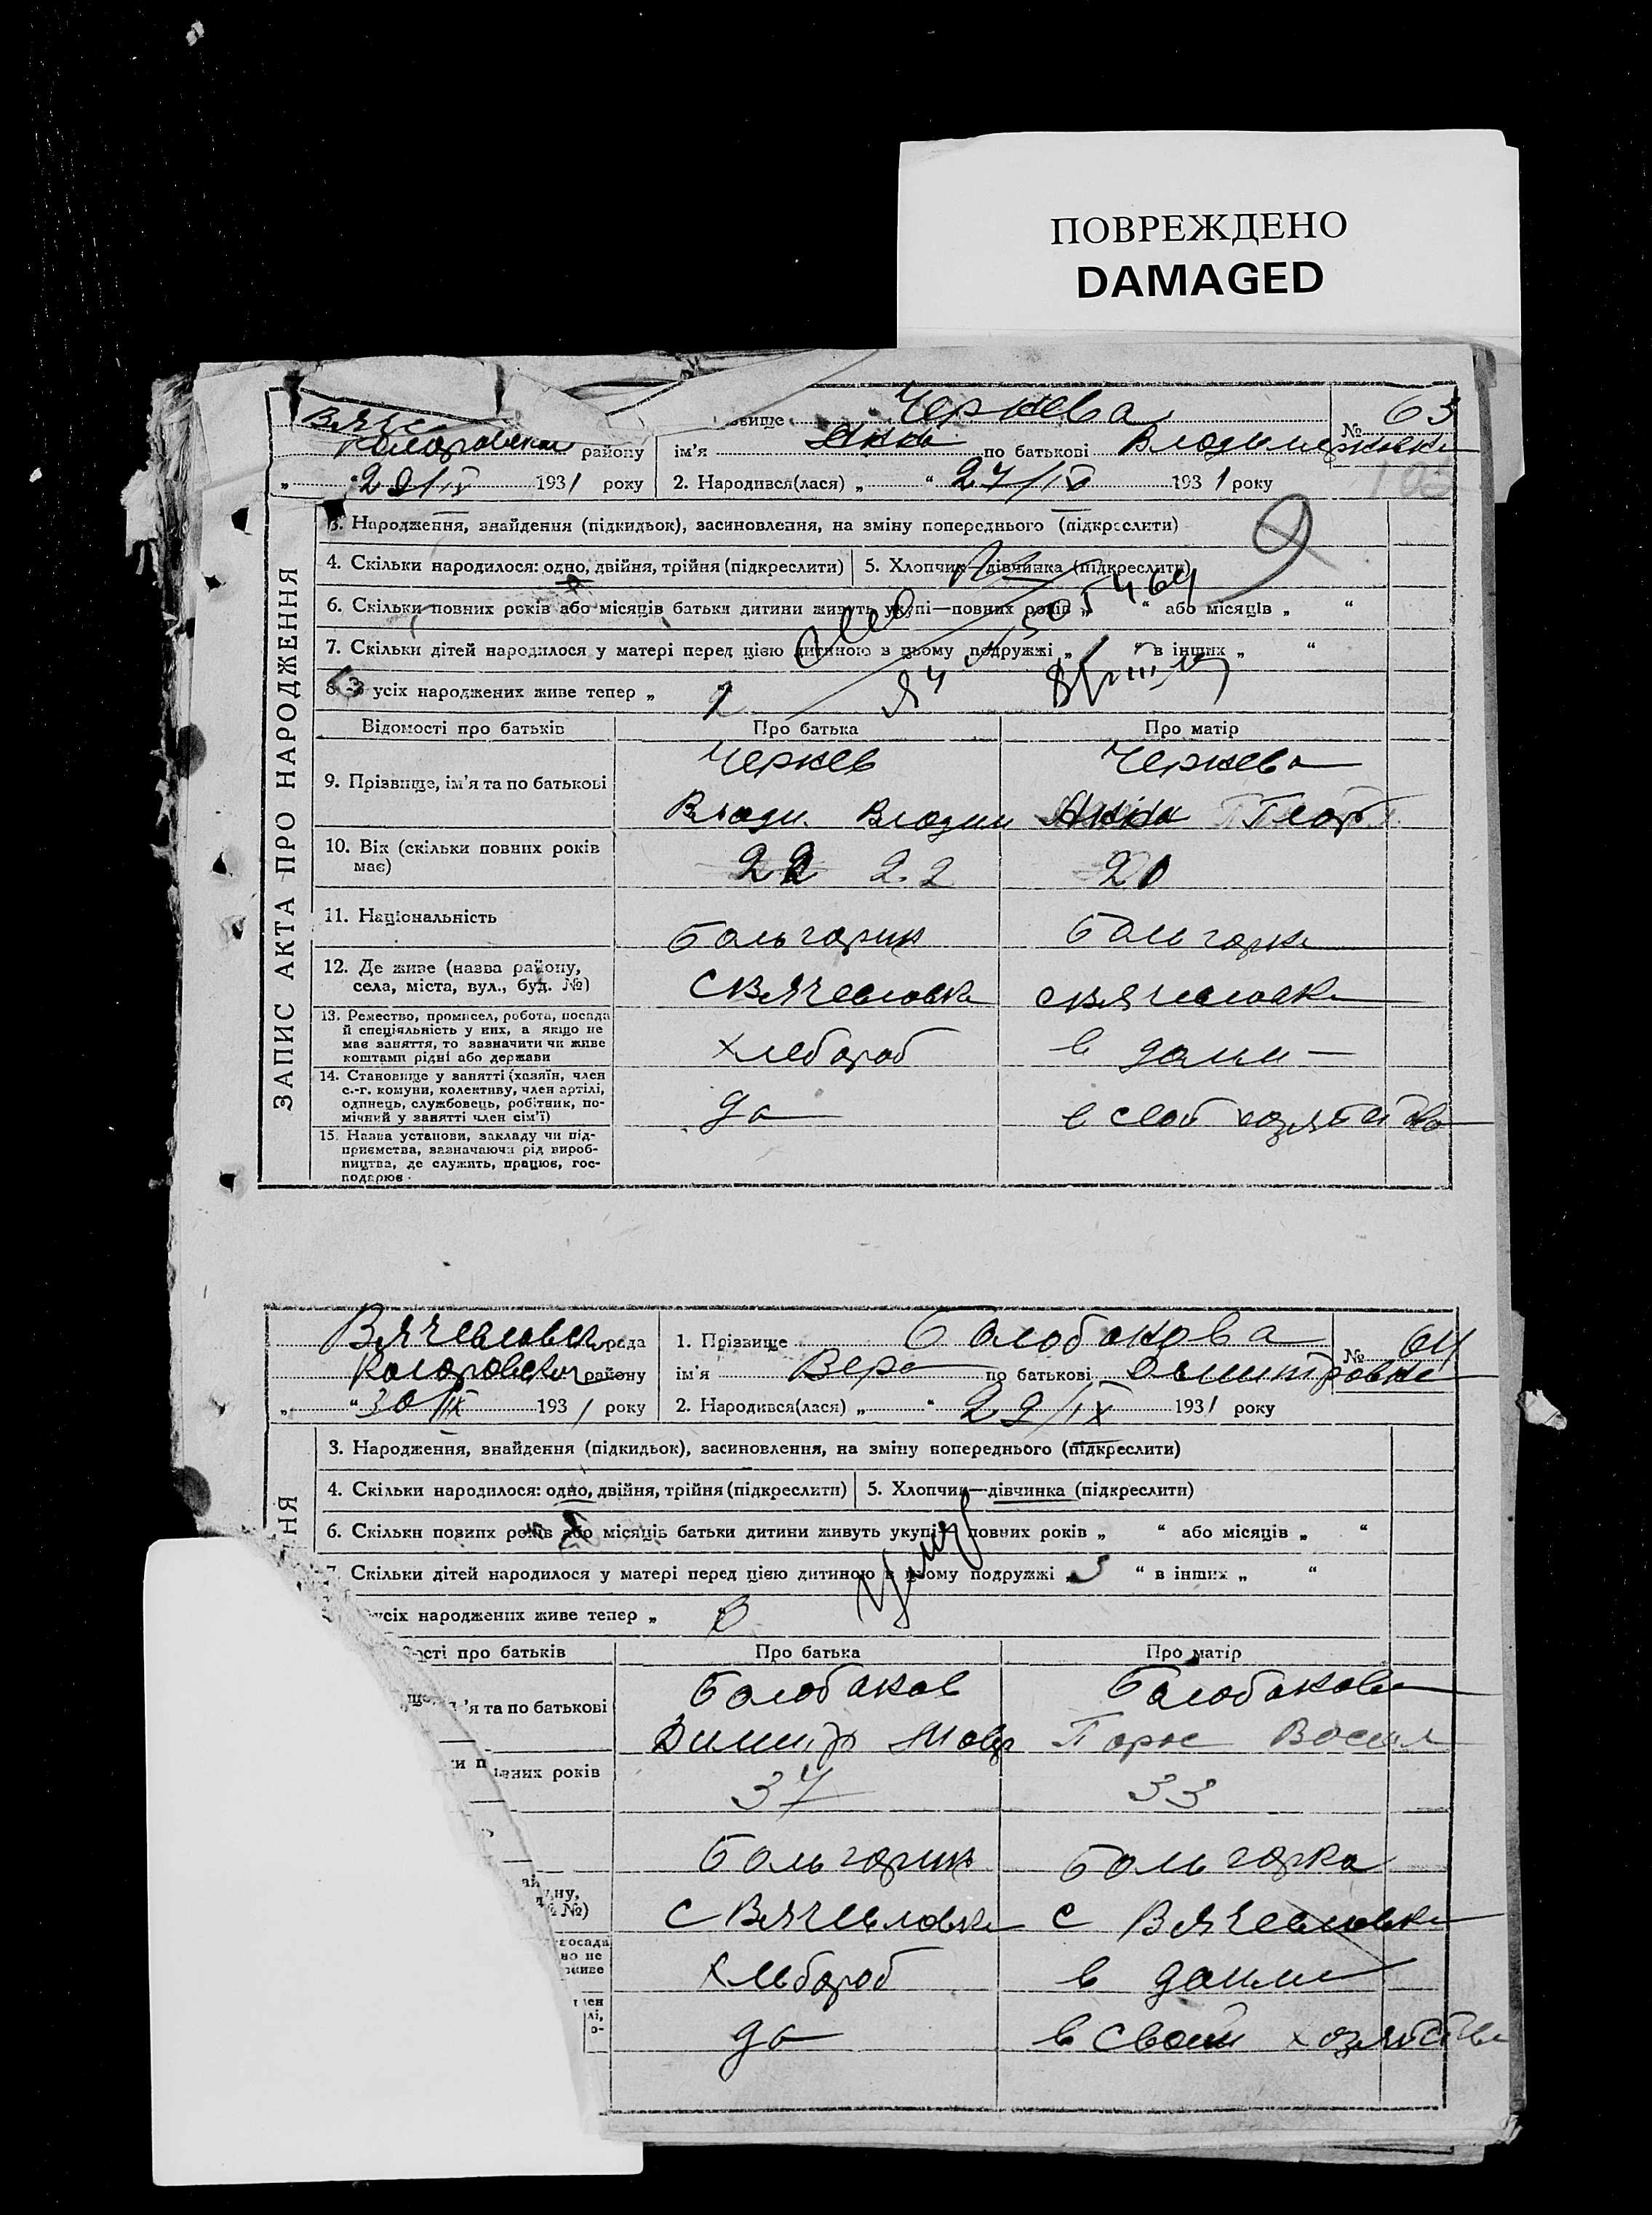 ПОВРЕЖДЕНО
DAMAGED
Чернева № 63
району ім'я Анна по батькові
"29/IX 1931 року 2. Народився(лася) „ “ 27/IX 1931 року
ЗАПИС АКТА ПРО НАРОДЖЕННЯ
3. Народження, знайдення (підкидьок), засиновлення, на зміну попереднього (підкреслити)
4. Скільки народилося: одно, двійня, трійня (підкреслити) 5. Хлопчик—дівчинка (підкреслити)
6. Скільки повних років або місяців батьки дитини живуть укупі—повних років „ “ або місяців „ “
7. Скільки дітей народилося у матері перед цією дитиною в цьому подружжі „ 1 “ в інших „ “
8. З усіх народжених живе тепер „ 2
Відомості про батьків Про батька Про матір
9. Прізвище, ім'я та по батькові Чернев Чернева
Влади. Владим Анна Георг
10. Вік (скільки повних років має) 22 22 20
11. Національність Бальгарин Бальгарка
12. Де живе (назва району, села, міста, вул., буд. №) С Вячеславка с Вячеславка
13. Ремество, промисел, робота, посада й спеціяльність у них, а якщо не має заняття, то зазначити чи живе коштами рідні або держави хлебороб в доми
14. Становище у занятті (хазяїн, член с.-г. комуни, колективу, член артілі, одинець, службовець, робітник, помічний у занятті член сім'ї) да в своб хозяйства
15. Назва установи, закладу чи підприємства, зазначаючи рід виробництва, де служить, працює, господарює
Вячеславск рада 1. Прізвище Балобанова № 64
Коларовского району ім'я Вера по батькові Димитровна
„ “30/IX 1931 року 2. Народився(лася) „ “ 29/IX 1931 року
3. Народження, знайдення (підкидьок), засиновлення, на зміну попереднього (підкреслити)
4. Скільки народилося: одно, двійня, трійня (підкреслити) 5. Хлопчик—дівчинка (підкреслити)
6. Скільки повних років або місяців батьки дитини живуть укупі повних років „ “ або місяців „ “
7. Скільки дітей народилося у матері перед цією дитиною в цьому подружжі „ 3 “ в інших „ “
усіх народжених живе тепер „
ості про батьків Про батька Про матір
'я та по батькові Балобанов Балобанова
Димитр Васил
вних років 37 33
Бальгарин Бальгарка
№) С Вячеславка с Вячеславка
Хлебороб в доми
да в своим хозяйства